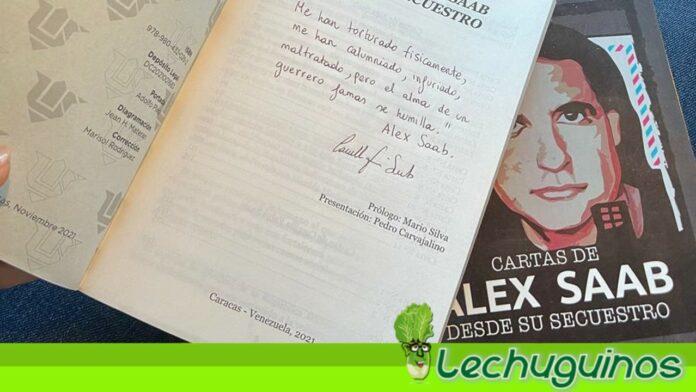 978-980-415-
Depósito Legal
Portada
Diagramación
Jean H. Matene
Corrección
Marisol Rodríguez
Noviembre 2021
SAAB
SECUESTRO
Me han torturado físicamente,
me han calumniado, injuriado,
maltratado, pero el alma de un
guerrero jamas se humilla."
Alex Saab.
Prólogo: Mario Silva
Presentación: Pedro Carvajalino
Caracas - Venezuela, 2021
CARTAS DE
ALEX SAAB
DESDE SU SECUESTRO
Lechuguinos